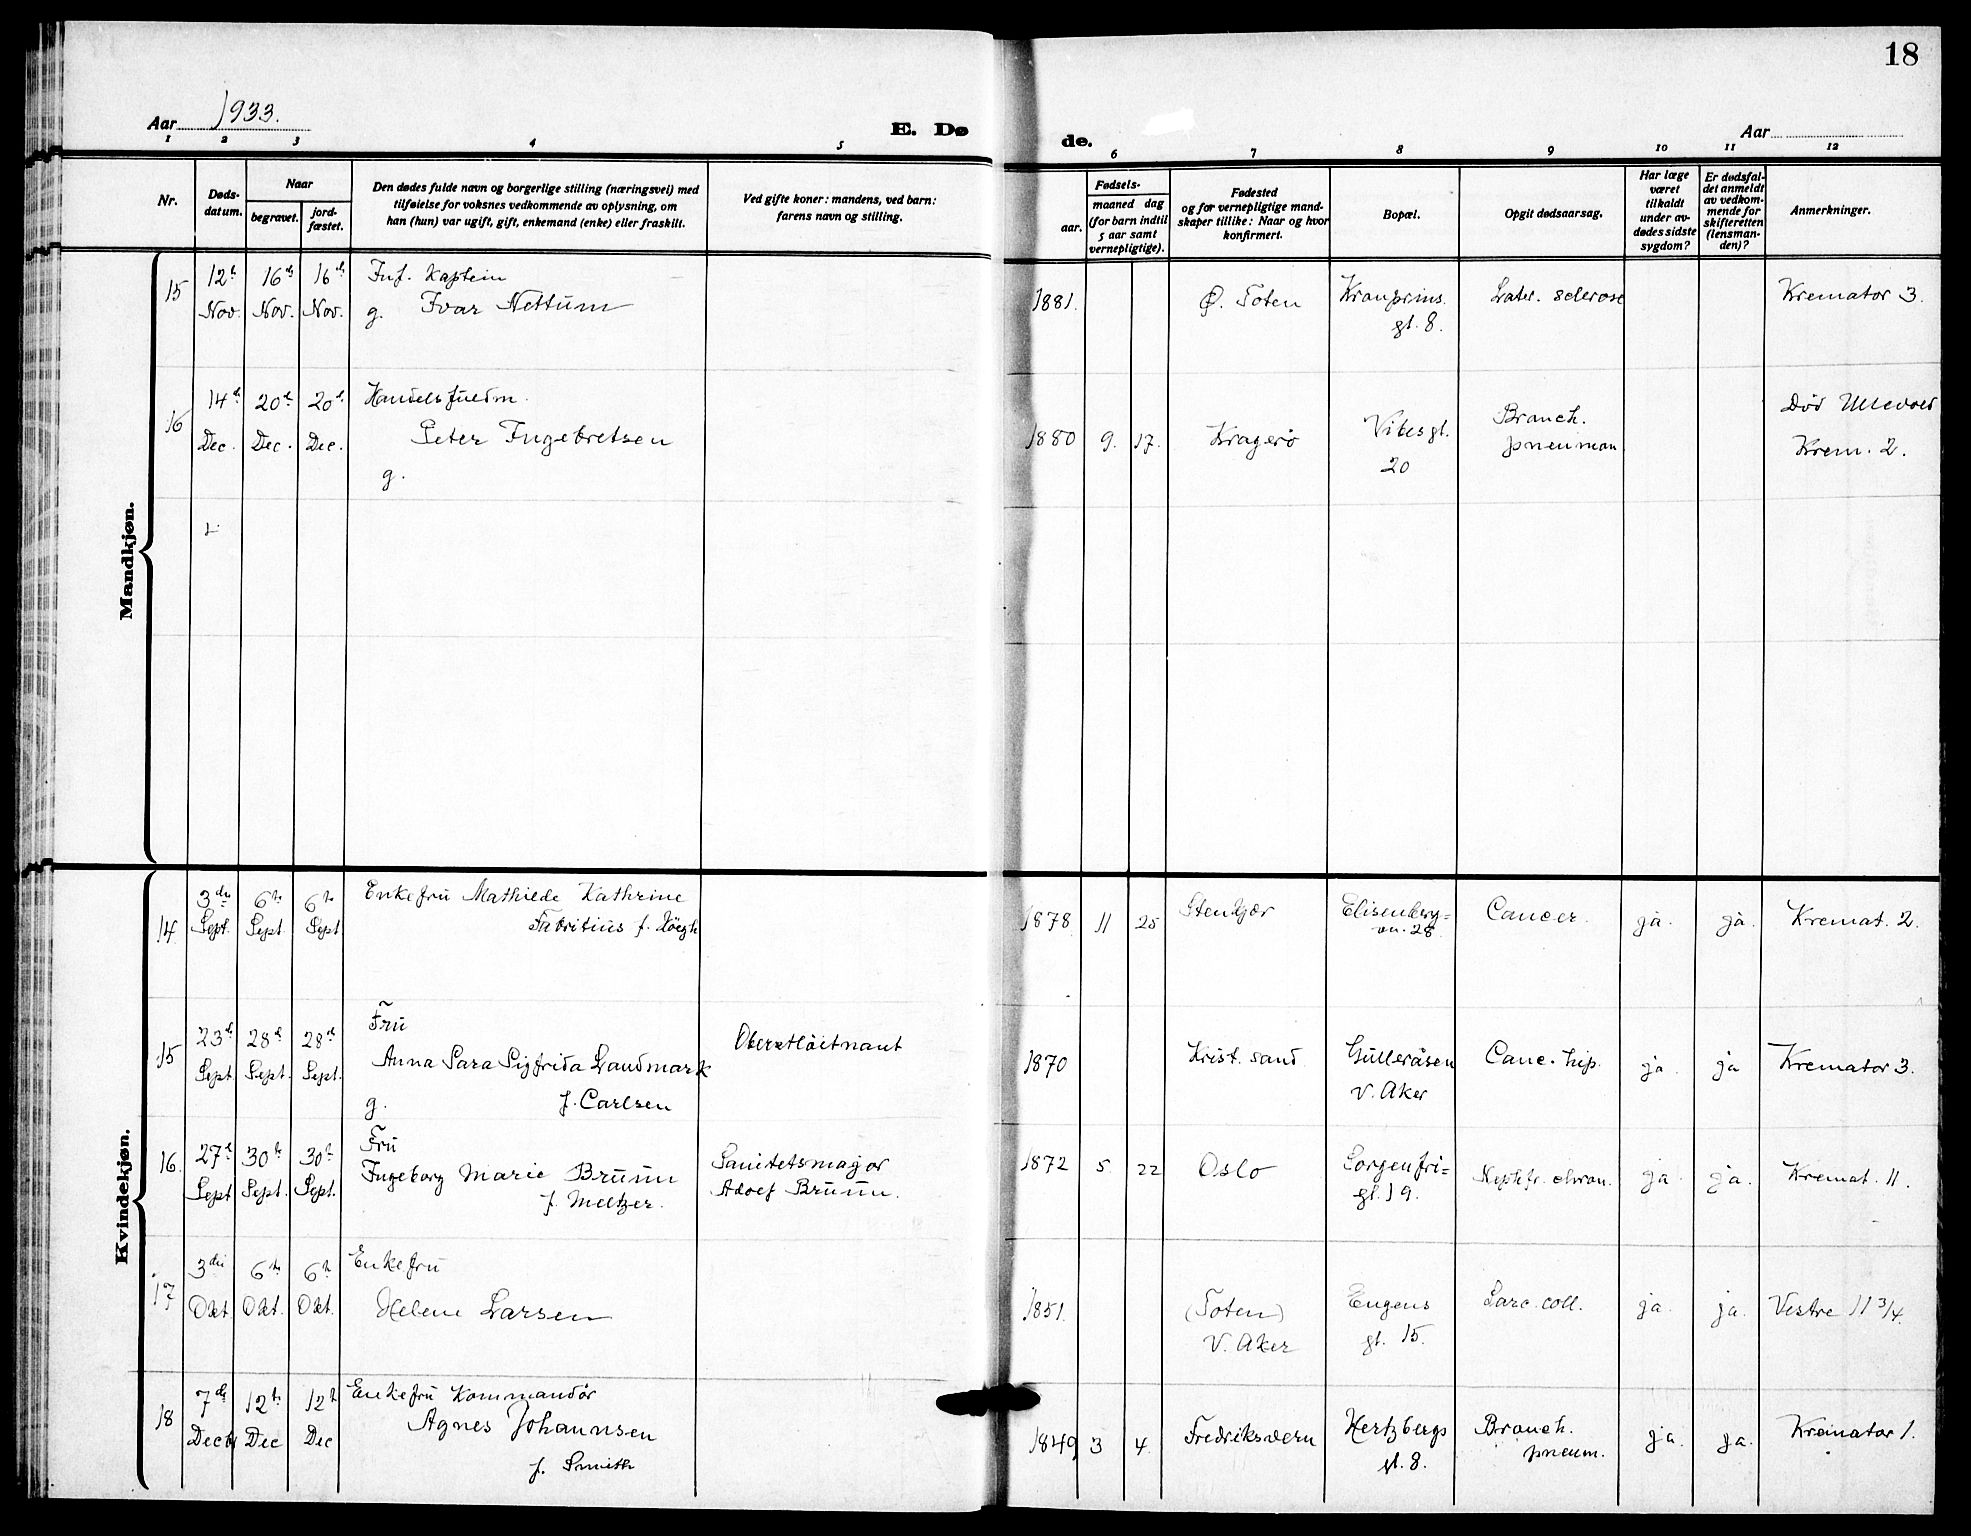 18
Aar 1933.
E. Dø
de.
Aar
1 2 3 4 5 6 7 8 9 10 11 12
Nr.
Døds-
datum.
Naar
begravet.
jord-
fæstet.
Den dødes fulde navn og borgerlige stilling (næringsvei) med
tilføielse for voksnes vedkommende av oplysning, om
han (hun) var ugift, gift, enkemand (enke) eller fraskilt.
Ved gifte koner: mandens, ved barn:
farens navn og stilling.
Fødsels-
aar.
maaned dag
(for barn indtil
5 aar samt
vernepligtige).
Fødested
og for vernepligtige mand-
skaper tillike: Naar og hvor
konfirmert.
Bopæl.
Opgit dødsaarsag.
Har læge
været
tilkaldt
under av-
dødes sidste
sygdom?
Er dødsfal-
det anmeldt
av vedkom-
mende for
skifteretten
(lensman-
den)?
Anmerkninger.
Mandkjøn.
15
12te Nov.
16de Nov.
16de Nov.
Inf. Kaptein
g. Ivar Nettum
1881.
Ø. Toten
Kronprins.
gt. 8.
Later. sclerose
Kremator 3.
16
14de Dec.
20de Dec.
20de Dec.
Handelsfuldm.
Peter Ingebretsen
g.
1880 9. 17.
Kragerø
Vibesgt.
20
Bronch.
pneumon
Død Ullevold
Krem. 2.
Kvindekjøn.
14
3die Sept.
6te Sept
6te Sept
Enkefru Mathilde Kathrine
Fabritius f.
1878 11 25
Stenkjær
Elisenberg=
vn. 28
Cancer.
ja.
ja.
Kremat. 2.
15
23de Sept
28de Sept.
28de Sept.
Fru
Anna Sara Sigfrida Landmark
g. f. Carlsen
Oberstløitnant
1870
Krist. sand
Gulleråsen
V. Aker
Canc. hip.
ja
ja
Kremator 3.
16.
27de Sept
30te Sept.
30te Sept.
Fru
Ingeborg Marie Bruun
f. Meltzer.
Sanitetsmajor
Adolf Bruun.
1872 5. 22
Oslo
Sorgenfri=
gt. 19.
Nephr. chron.
ja.
ja.
Kremat. 11.
17
3die Okt
6te Okt.
6te Okt.
Enkefru
Helene Larsen
1851.
(Toten)
V. Aker
Eugens
gt. 15.
coll.
ja.
ja.
Vestre 11 3/4.
18
7de Decbr
12te Dec
12te Dec
Enkefru Kommandør
Agnes Johannsen
f. Smith
1849 3 4.
Fredriksvern
Hertzbergs
gt. 8.
Bronch.
pneum.
ja.
ja.
Kremator 1.